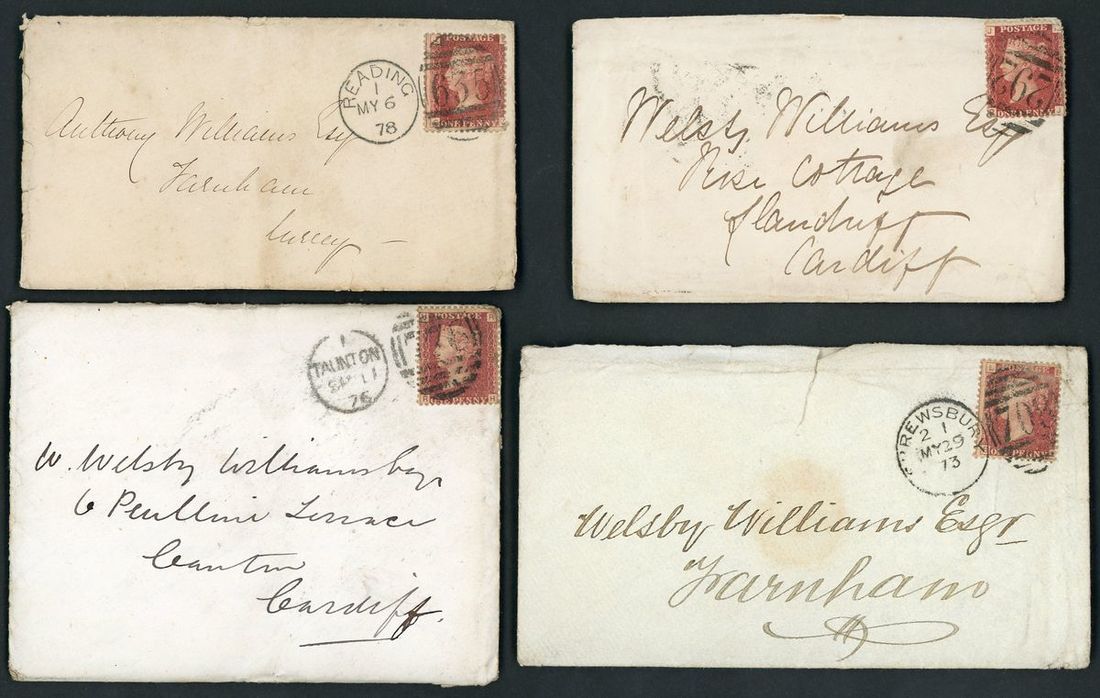 READING
1
MY 6
78
POSTAGE
635
ONE PENNY
Anthony Williams Esq
Farnham
Surrey
POSTAGE
ONE PENNY
Welsby Williams Esq
Rise Cottage
Llandriff
Cardiff
1
TAUNTON
SP 11
76
POSTAGE
ONE PENNY
W. Welsby Williams
6 Penlline Terrace
Canton
Cardiff.
SHREWSBURY
2 1
MY 29
73
POSTAGE
708
ONE PENNY
Welsby Williams Esqr
Farnham